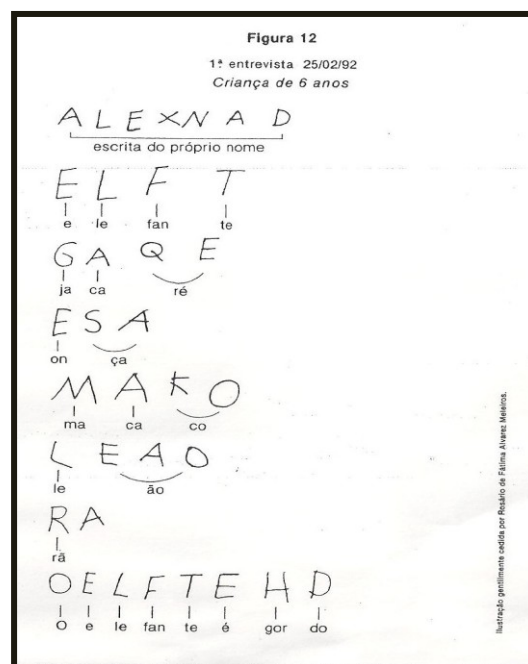 Figura 12
1ª entrevista 25/02/92
Criança de 6 anos
A L E X N A D
escrita do próprio nome
E L F T
e le fan te
G A Q E
ja ca ré
E S A
on ça
M A K O
ma ca co
L E A O
le ão
R A
rã
O E L F T E H D
O e le fan te é gor do
Ilustração gentilmente cedida por Rosário de Fátima Alvarez Meleiros.